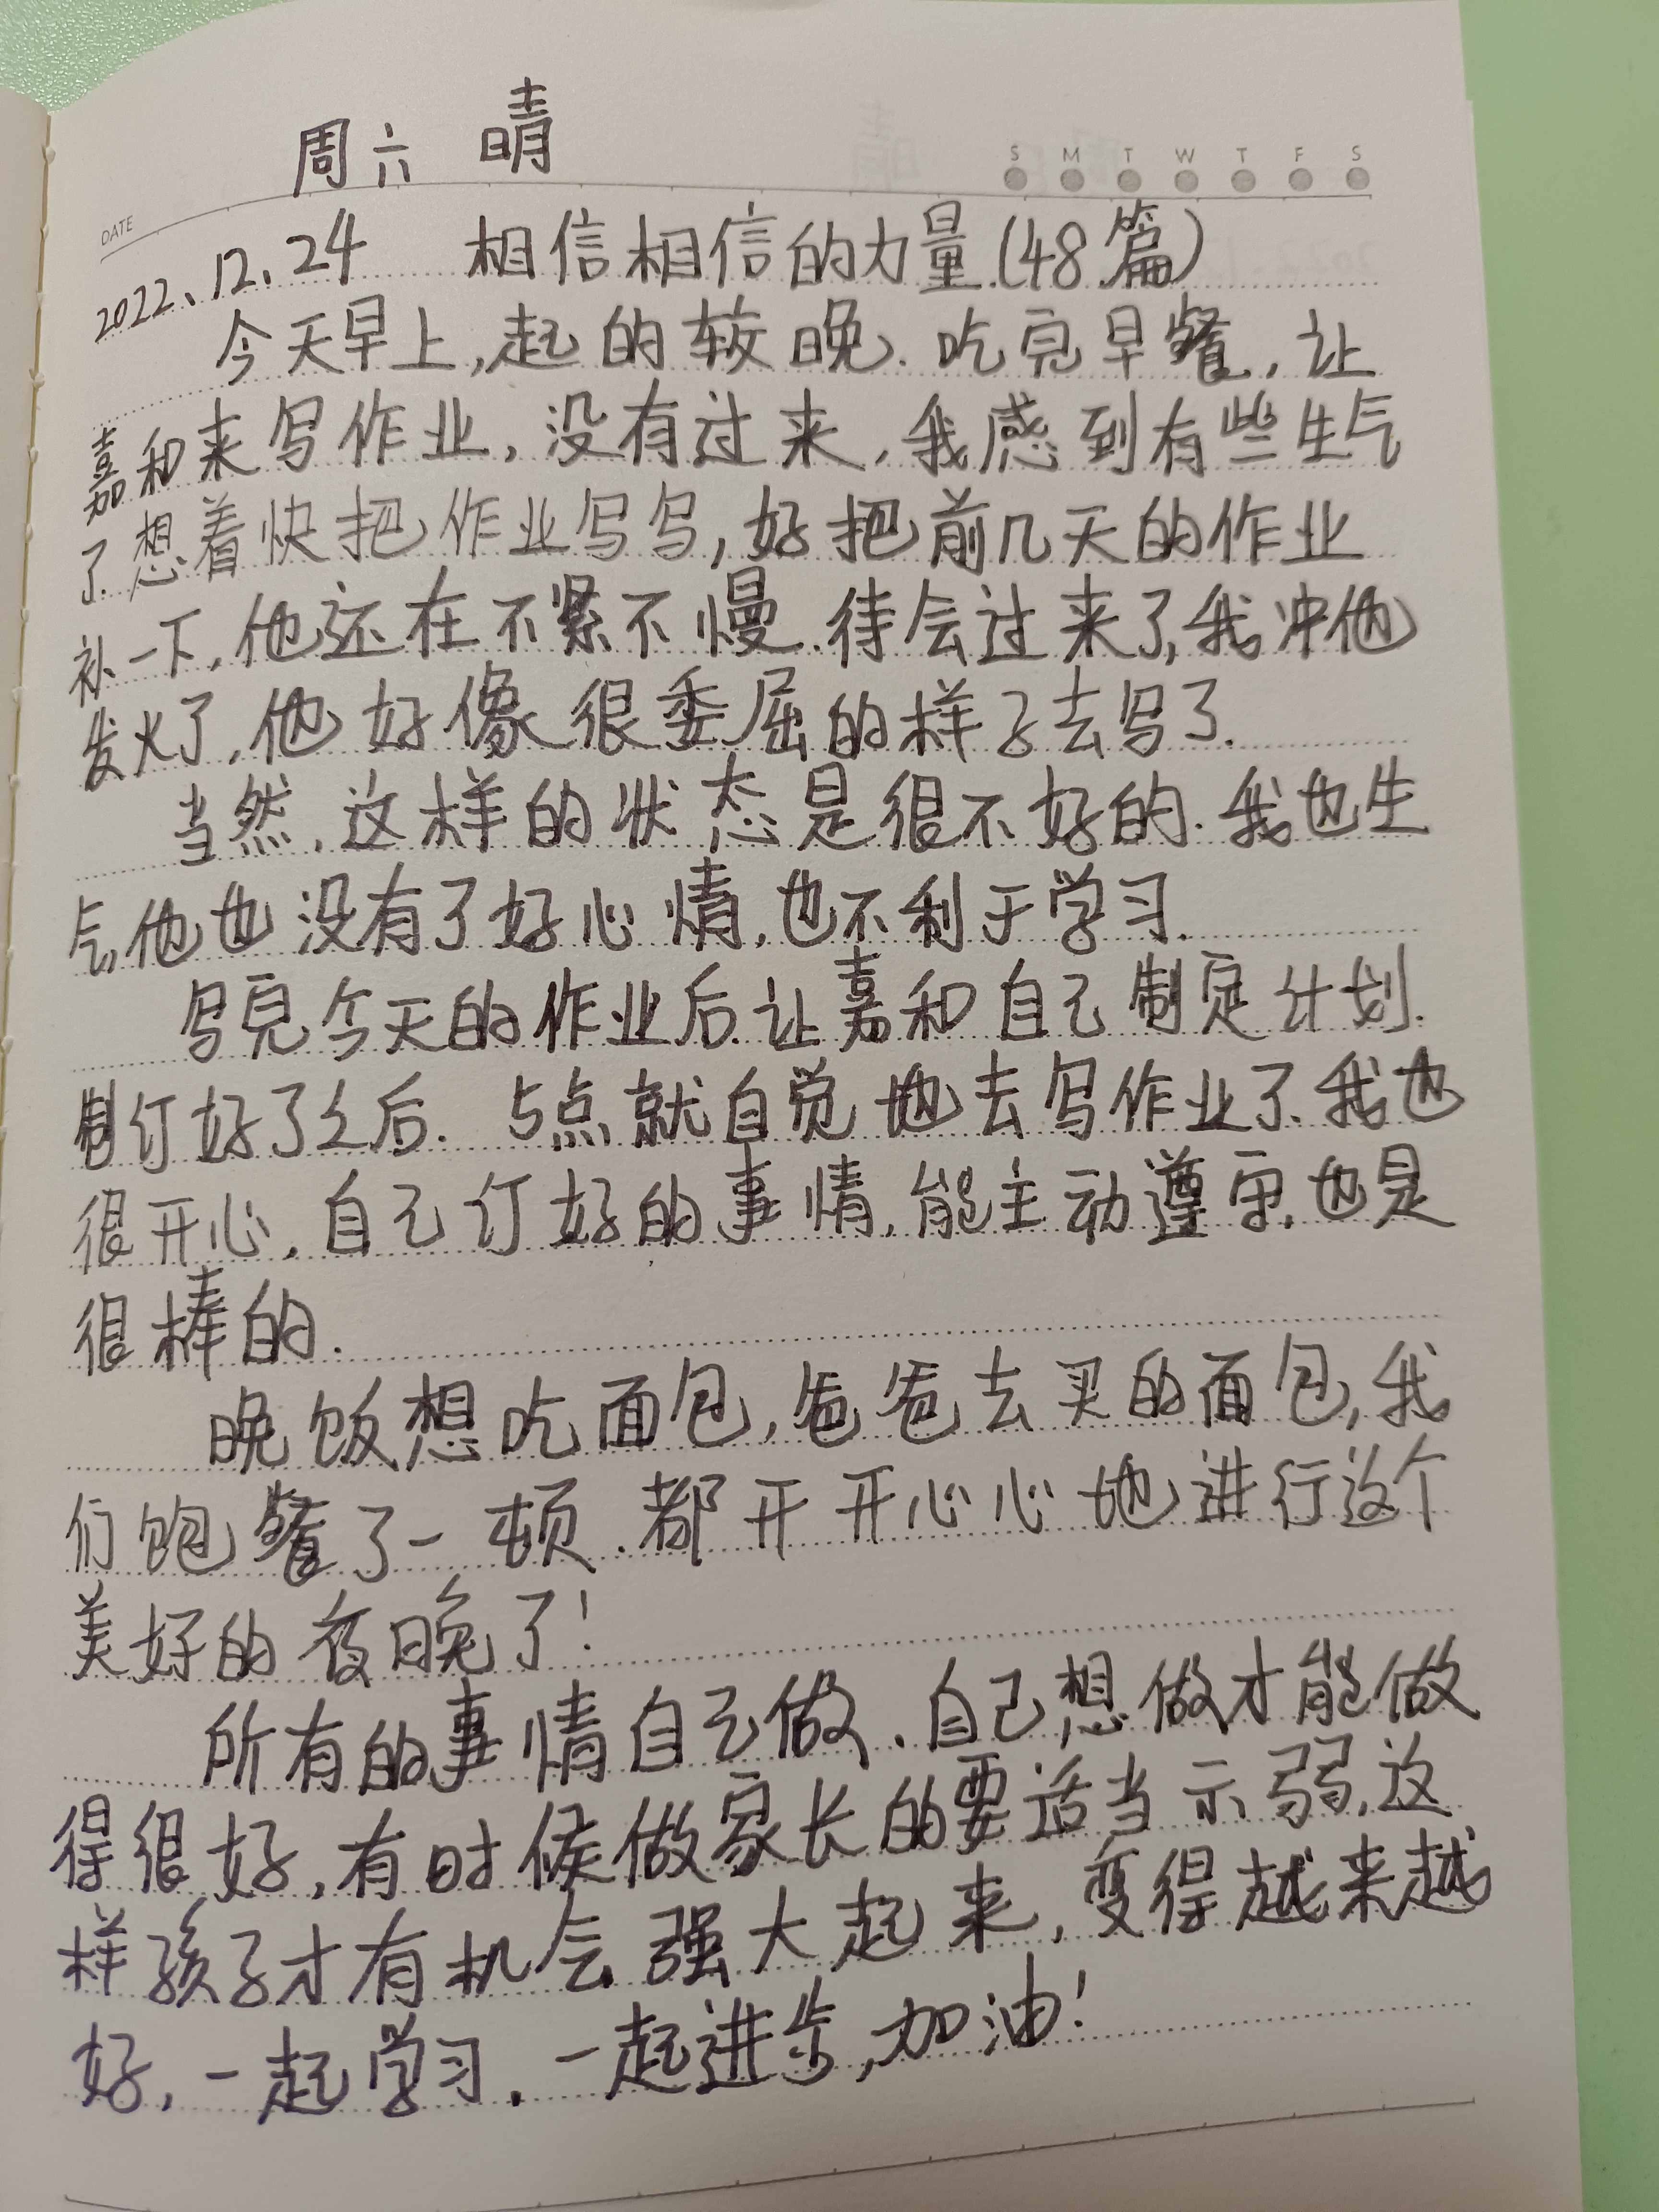 周六 晴
S M T W T F S
DATE
2022、12、24 相信相信的力量.(48篇)
今天早上,起的较晚.吃完早餐,让
嘉和来写作业,没有过来,我感到有些生气
了.想着快把作业写写,好把前几天的作业
补一下,他还在不紧不慢.待会过来了,我冲他
发火了,他好像很委屈的样子去写了.
当然,这样的状态是很不好的.我也生
气他也没有了好心情,也不利于学习.
写完今天的作业后.让嘉和自己制定计划.
制订好了之后.5点就自觉地去写作业了.我也
很开心,自己订好的事情,能主动遵守,也是
很棒的.
晚饭想吃面包,爸爸去买的面包,我
们饱餐了一顿.都开开心心地进行这个
美好的夜晚了!
所有的事情自己做、自己想做才能做
得很好,有时候做家长的要适当示弱,这
样孩子才有机会强大起来,变得越来越
好,一起学习,一起进步,加油!